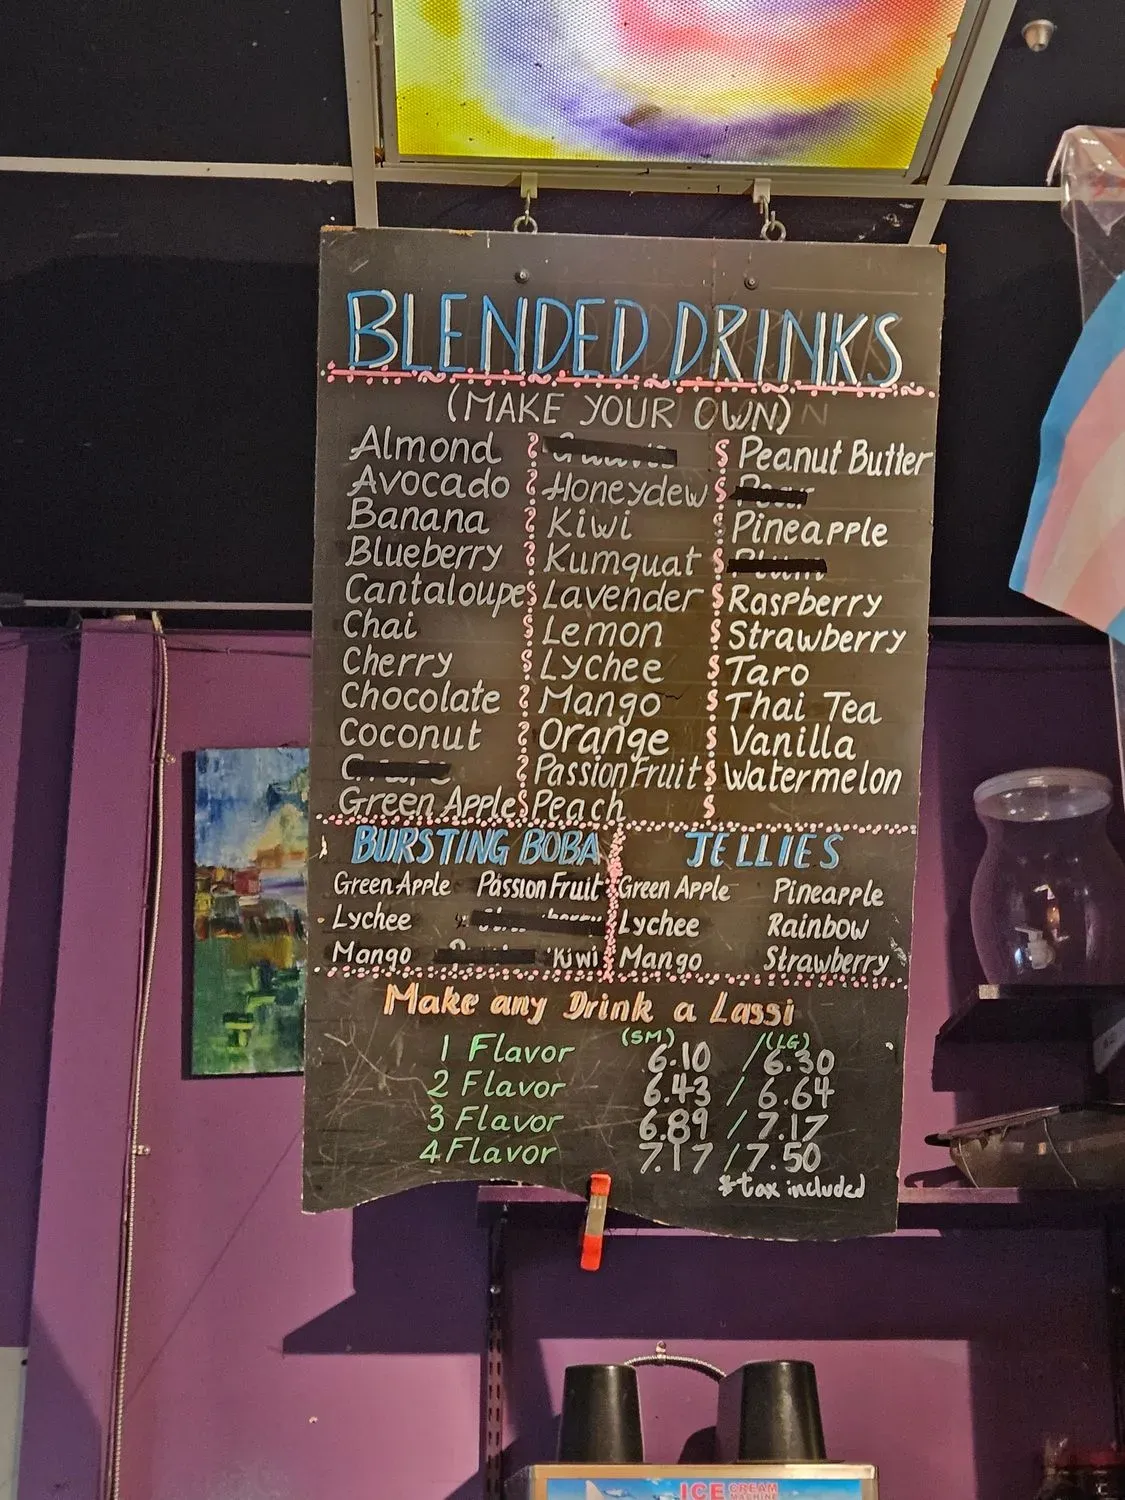 BLENDED DRINKS
(MAKE YOUR OWN)
Almond
Avocado
Banana
Blueberry
Cantaloupe
Chai
Cherry
Chocolate
Coconut
Green Apple
Honeydew
Kiwi
Kumquat
Lavender
Lemon
Lychee
Mango
Orange
Passion Fruit
Peach
Peanut Butter
Pineapple
Raspberry
Strawberry
Taro
Thai Tea
Vanilla
Watermelon
BURSTING BOBA
Green Apple Passion Fruit
Lychee
Mango Kiwi
JELLIES
Green Apple Pineapple
Lychee Rainbow
Mango Strawberry
Make any Drink a Lassi
(SM) / (LG)
1 Flavor 6.10 / 6.30
2 Flavor 6.43 / 6.64
3 Flavor 6.89 / 7.17
4 Flavor 7.17 / 7.50
*tax included
ICE CREAM MACHINE